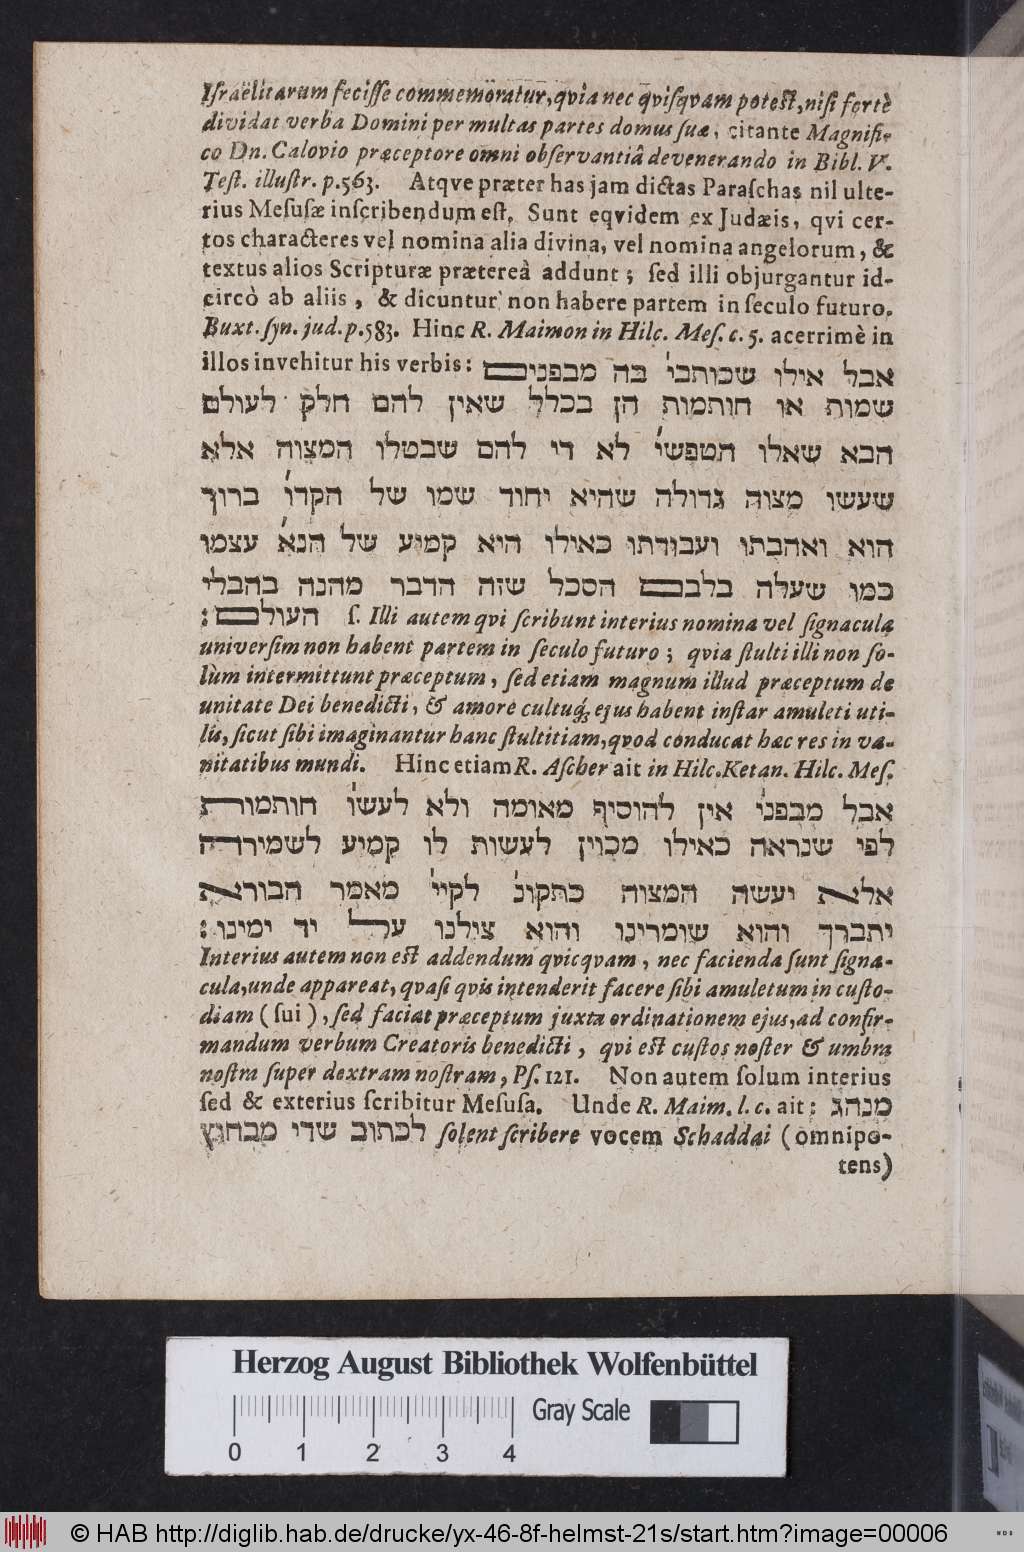 Iſraëlitarum feciſſe commemoratur, qvia nec qviſqvam poteſt, niſi fortè
dividat verba Domini per multas partes domus ſuæ, citante Magnifi-
co Dn. Calovio præceptore omni obſervantiâ devenerando in Bibl. V.
Teſt. illuſtr. p. 563. Atqve præter has jam dictas Paraſchas nil ulte-
rius Meſuſæ inſcribendum eſt. Sunt eqvidem ex Judæis, qvi cer-
tos characteres vel nomina alia divina, vel nomina angelorum, &
textus alios Scripturæ prætereà addunt; ſed illi objurgantur id-
circò ab aliis, & dicuntur non habere partem in ſeculo futuro.
Buxt. ſyn. jud. p. 583. Hinc R. Maimon in Hilc. Meſ. c. 5. acerrimè in
illos invehitur his verbis: אבל אילו שכותבי׳ בה מבפנים
שמות או חותמות הן בכלל שאין להם חלק לעולם
הבא שאלו הטפשי׳ לא די להם שבטלו המצוה אלא
שעשו מצוה גדולה שהיא יחוד שמו של הקדו׳ ברוך
הוא ואהבתו ועבודתו כאילו היא קמיע של הנא׳ עצמו
כמו שעלה בלבם הסכל שזה הדבר מהנה בהבלי
העולם: ſ. Illi autem qvi ſcribunt interius nomina vel ſignacula
univerſim non habent partem in ſeculo futuro; qvia ſtulti illi non ſo-
lùm intermittunt præceptum, ſed etiam magnum illud præceptum de
unitate Dei benedicti, & amore cultuq́; ejus habent inſtar amuleti uti-
lis, ſicut ſibi imaginantur hanc ſtultitiam, qvod conducat hæc res in va-
nitatibus mundi. Hinc etiam R. Aſcher ait in Hilc. Ketan. Hilc. Meſ.
אבל מבפנו׳ אין להוסיף מאומה ולא לעשו׳ חותמות
לפי שנראה כאילו מכוין לעשות לו קמיע לשמירה
אלא יעשה המצוה כתקונ׳ לקיי׳ מאמר הבורא
יתברך והוא שומרינו והוא צילנו על יד ימינו:
Interius autem non eſt addendum qvicqvam, nec facienda ſunt ſigna-
cula, unde appareat, qvaſi qvis intenderit facere ſibi amuletum in cuſto-
diam (ſui), ſed faciat præceptum juxta ordinationem ejus, ad confir-
mandum verbum Creatoris benedicti, qvi eſt cuſtos noſter & umbra
noſtra ſuper dextram noſtram, Pſ. 121. Non autem ſolum interius
ſed & exterius ſcribitur Meſuſa. Unde R. Maim. l. c. ait: מנהג
לכתוב שדי מבחוץ ſolent ſcribere vocem Schaddai (omnipo-
tens)
Herzog August Bibliothek Wolfenbüttel
Gray Scale
0 1 2 3 4
© HAB http://diglib.hab.de/drucke/yx-46-8f-helmst-21s/start.htm?image=00006